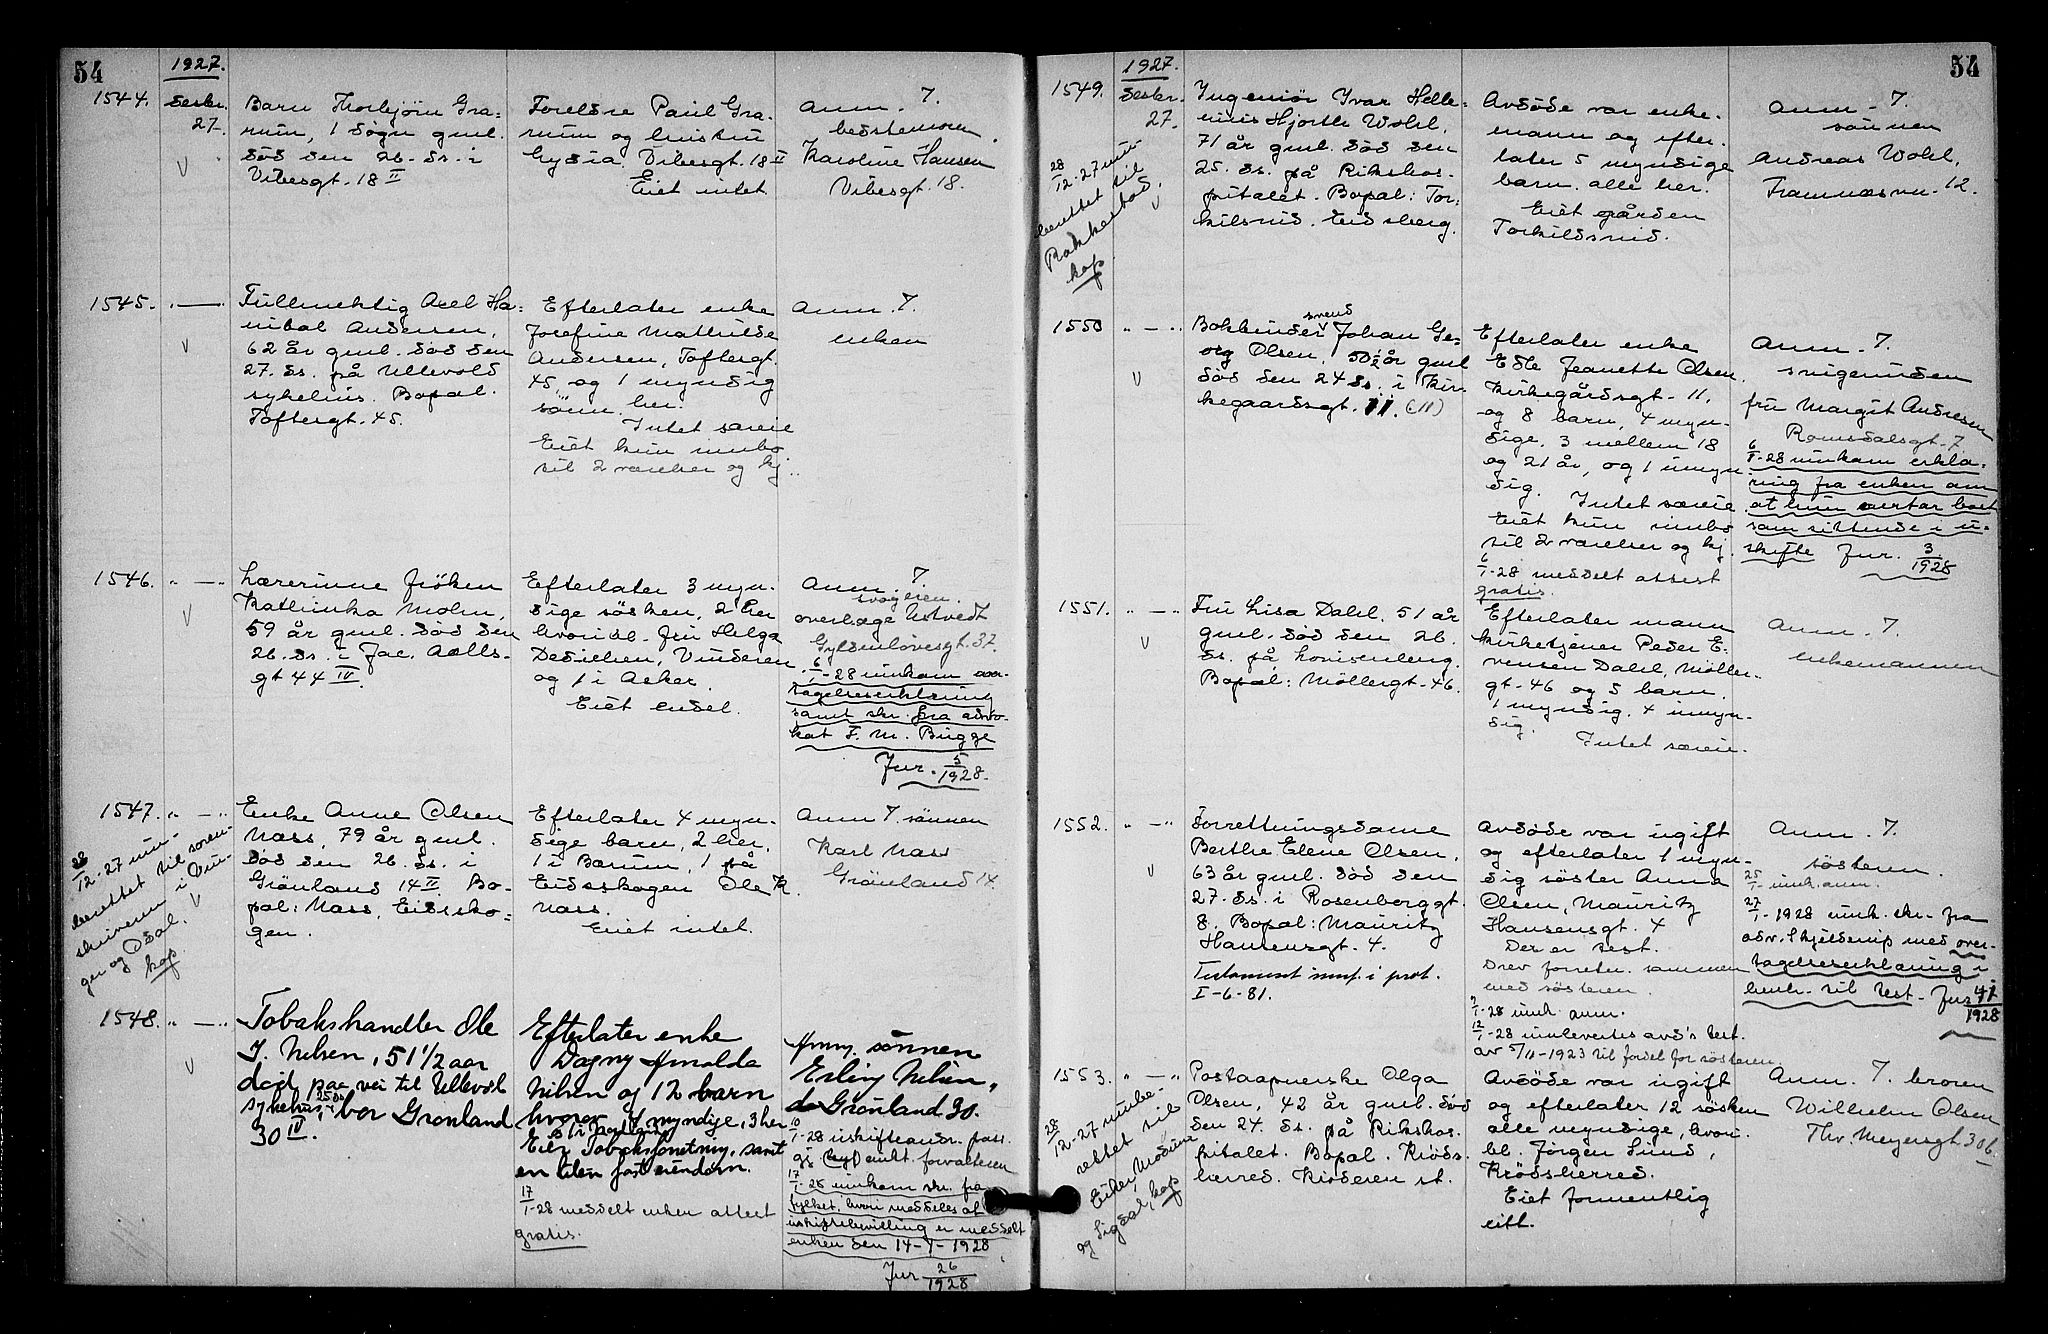 54
1927.
1544. Desbr. 27.
Barn Thorbjörn Gra=
num, 1 døgn gml.
død den 26. ds. i
Vibesgt. 18 II
Foreldre Paul Gra-
num og hustru
Lydia. Vibesgt. 18 II
Eiet intet
Anm. 7.
bedstemoren
Karoline Hansen
Vibesgt. 18.
1545. " — "
Fullmektig Axel Ha=
nibal Andersen,
62 år gml. død den
27. ds. på Ullevold
sykehus. Bopæl.
Toftesgt. 45.
Efterlater enke
Josefine Mathilde
Andersen, Toftesgt.
45, og 1 myndig
sönn, her.
Intet særeie
Eiet kun innbo
til 2 værelser og kj.
Anm. 7.
enken
1546. " — "
Lærerinne fröken
Kathinka Mohn,
59 år gml. död den
26. ds. i Jac. Aalls-
gt 44 IV.
Efterlater 3 myn-
dige sösken, 2 her
hvoribl. fru Helga
Dedichen, Vinderen
og 1 i Asker.
Eiet endel.
Anm. 7.
svogeren.
overlæge Ustvedt
Gyldenlövesgt. 37.
6/1-28 innkom over-
tagelseserklæring
samt skr. fra advo-
kat F. M. Bugge
Jur. 5/1928.
1547. " — "
28/12-27 inn-
berettet til soren-
skriveren i Vin-
ger og Odal.
kop
Enke Anne Olsen
Næss, 79 år gml.
död den 26. ds. i
Grönland 14 II. Bo-
pæl: Næss, Eidsko=
gen.
Efterlater 4 myn-
dige barn, 2 her,
1 i Bærum, 1 på
Eidsskogen Ole K.
Næss.
Eiet intet.
Anm 7. sönnen
Karl Næss
Grönland 14.
1548. " — "
Tobakshandler Ole
J. Nilsen, 51 1/2 aar
död paa vei til Ullevål
sykehus, 25 ds bor Grönland
30 IV.
Efterlater enke
Dagny Arnolda
Nilsen og 12 barn
hvorav 4 myndige, 3 her
Eier Tobaksforretning, samt
en liten fast eiendom.
17/1-28 meddelt enken attest
gratis.
Anm. sönnen
Erling Nilsen,
Grönland 30.
10/1-28 uskifteandr. pass.
17/1-28 innkom skr. fra
fylket, hvori meddeles at
uskiftebevilling er meddelt
enken den 14-1-1928
Jur 26/1928
54
1927.
1549. Desbr. 27.
28/12-27 inn-
berettet til
Rakkestad.
kop
Ingeniör Ivar Helle=
nius Hjorth Wohl,
71 år gml. död den
25. ds. på Rikshos-
pitalet. Bopæl: Tor=
kilsrud, Eidsberg.
Avdöde var enke-
mann og efter-
later 5 myndige
barn. alle her.
Eiet gården
Torkildsrud.
Anm. 7.
sönnen
Andreas Wohl,
Framnæsvn. 12.
1550 " — "
Bokbinder svend Johan Ge-
org Olsen, 50 1/2 år gml
död den 24 ds. i Kir-
kegaardsgt. 11. (11)
Efterlater enke
Edle Jeanette Olsen
Kirkegårdsgt. 11,
og 8 barn, 4 myn-
dige, 3 mellem 18
og 21 år, og 1 umyn-
dig. Intet særeie
Eiet kun innbo
til 2 værelser og kj.
6/1-28 meddelt attest
gratis.
Anm. 7.
svigerinden
fru Margit Andresen
Romsdalsgt. 7
6/1-28 innkom erklæ-
ring fra enken om
at hun overtar boet
som sittende i u-
skifte Jur. 3/1928
1551. " — "
Fru Lisa Dahl, 51 år
gml. död den 26.
ds. på Lovisenberg.
Bopæl: Möllergt. 46.
Efterlater mann
kirketjener Peder E-
vensen Dahl, Möller-
gt. 46 og 5 barn,
1 myndig, 4 umyn-
dig.
Intet særeie.
Anm. 7.
enkemannen
1552. " — "
Forretningsdame
Berthe Elene Olsen,
63 år gml. död den
27. ds. i Rosenborggt.
8. Bopæl: Mauritz
Hansensgt. 4.
Testament innf. i prot.
I-6-81.
Avdöde var ugift
og efterlater 1 myn-
dig söster Anna
Olsen, Mauritz
Hansensgt. 4
Der er test.
Drev forretn. sammen
med sösteren.
9/1-28 innk. anm.
12/1-28 innlevertes avd's test.
av 5/11-1923 til fordel for sösteren.
Anm. 7.
sösteren.
25/1- innk. anm.
27/1-1928 innk. skr. fra
adv. Skjelderup med over-
tagelseserklæring i
henh. til test. Jur 41/1928
1553. " — "
28/12-27 innbe-
rettet til
Eiker, Modum
og Sigdal, kop
Postaapnerske Olga
Olsen, 42 år gml. död
den 24. ds. på Rikshos-
pitalet. Bopæl. Kröds-
herred. Kröderen st.
Avdöde var ugift
og efterlater 12 sösken
alle myndige, hvori-
bl. Jörgen Lund,
Krödsherred.
Eiet formentlig
litt.
Anm. 7. broren
Wilhelm Olsen
Thv. Meyersgt. 30 b.